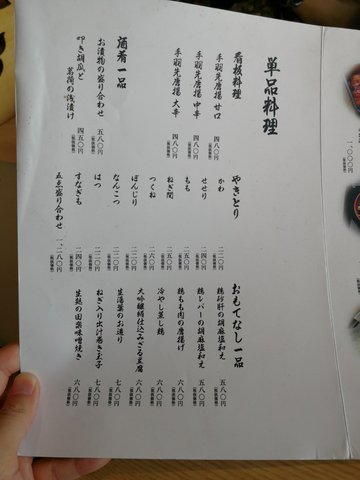 単品料理
看板料理
手羽先唐揚 甘口 四八〇円
手羽先唐揚 中辛 四八〇円
手羽先唐揚 大辛 四八〇円
酒肴一品
お漬物の盛り合わせ 五八〇円
叩き胡瓜と
茗荷の浅漬け 四五〇円
やきとり
かわ 二二〇円
せせり 二四〇円
もも 二五〇円
ねぎ間 二五〇円
つくね 二六〇円
ぼんじり 二二〇円
なんこつ 二二〇円
はつ 二二〇円
すなぎも 二四〇円
五点盛り合わせ 一、二八〇円
おもてなし一品
鶏砂肝の胡麻塩和え 五八〇円
鶏レバーの胡麻塩和え 五八〇円
鶏もも肉の唐揚げ 六八〇円
冷やし蒸し鶏 六八〇円
大吟醸絹仕込みざる豆腐 六八〇円
生湯葉のお造り 七八〇円
ねぎ入り出汁巻き玉子 七八〇円
生麩の田楽味噌焼き 六八〇円